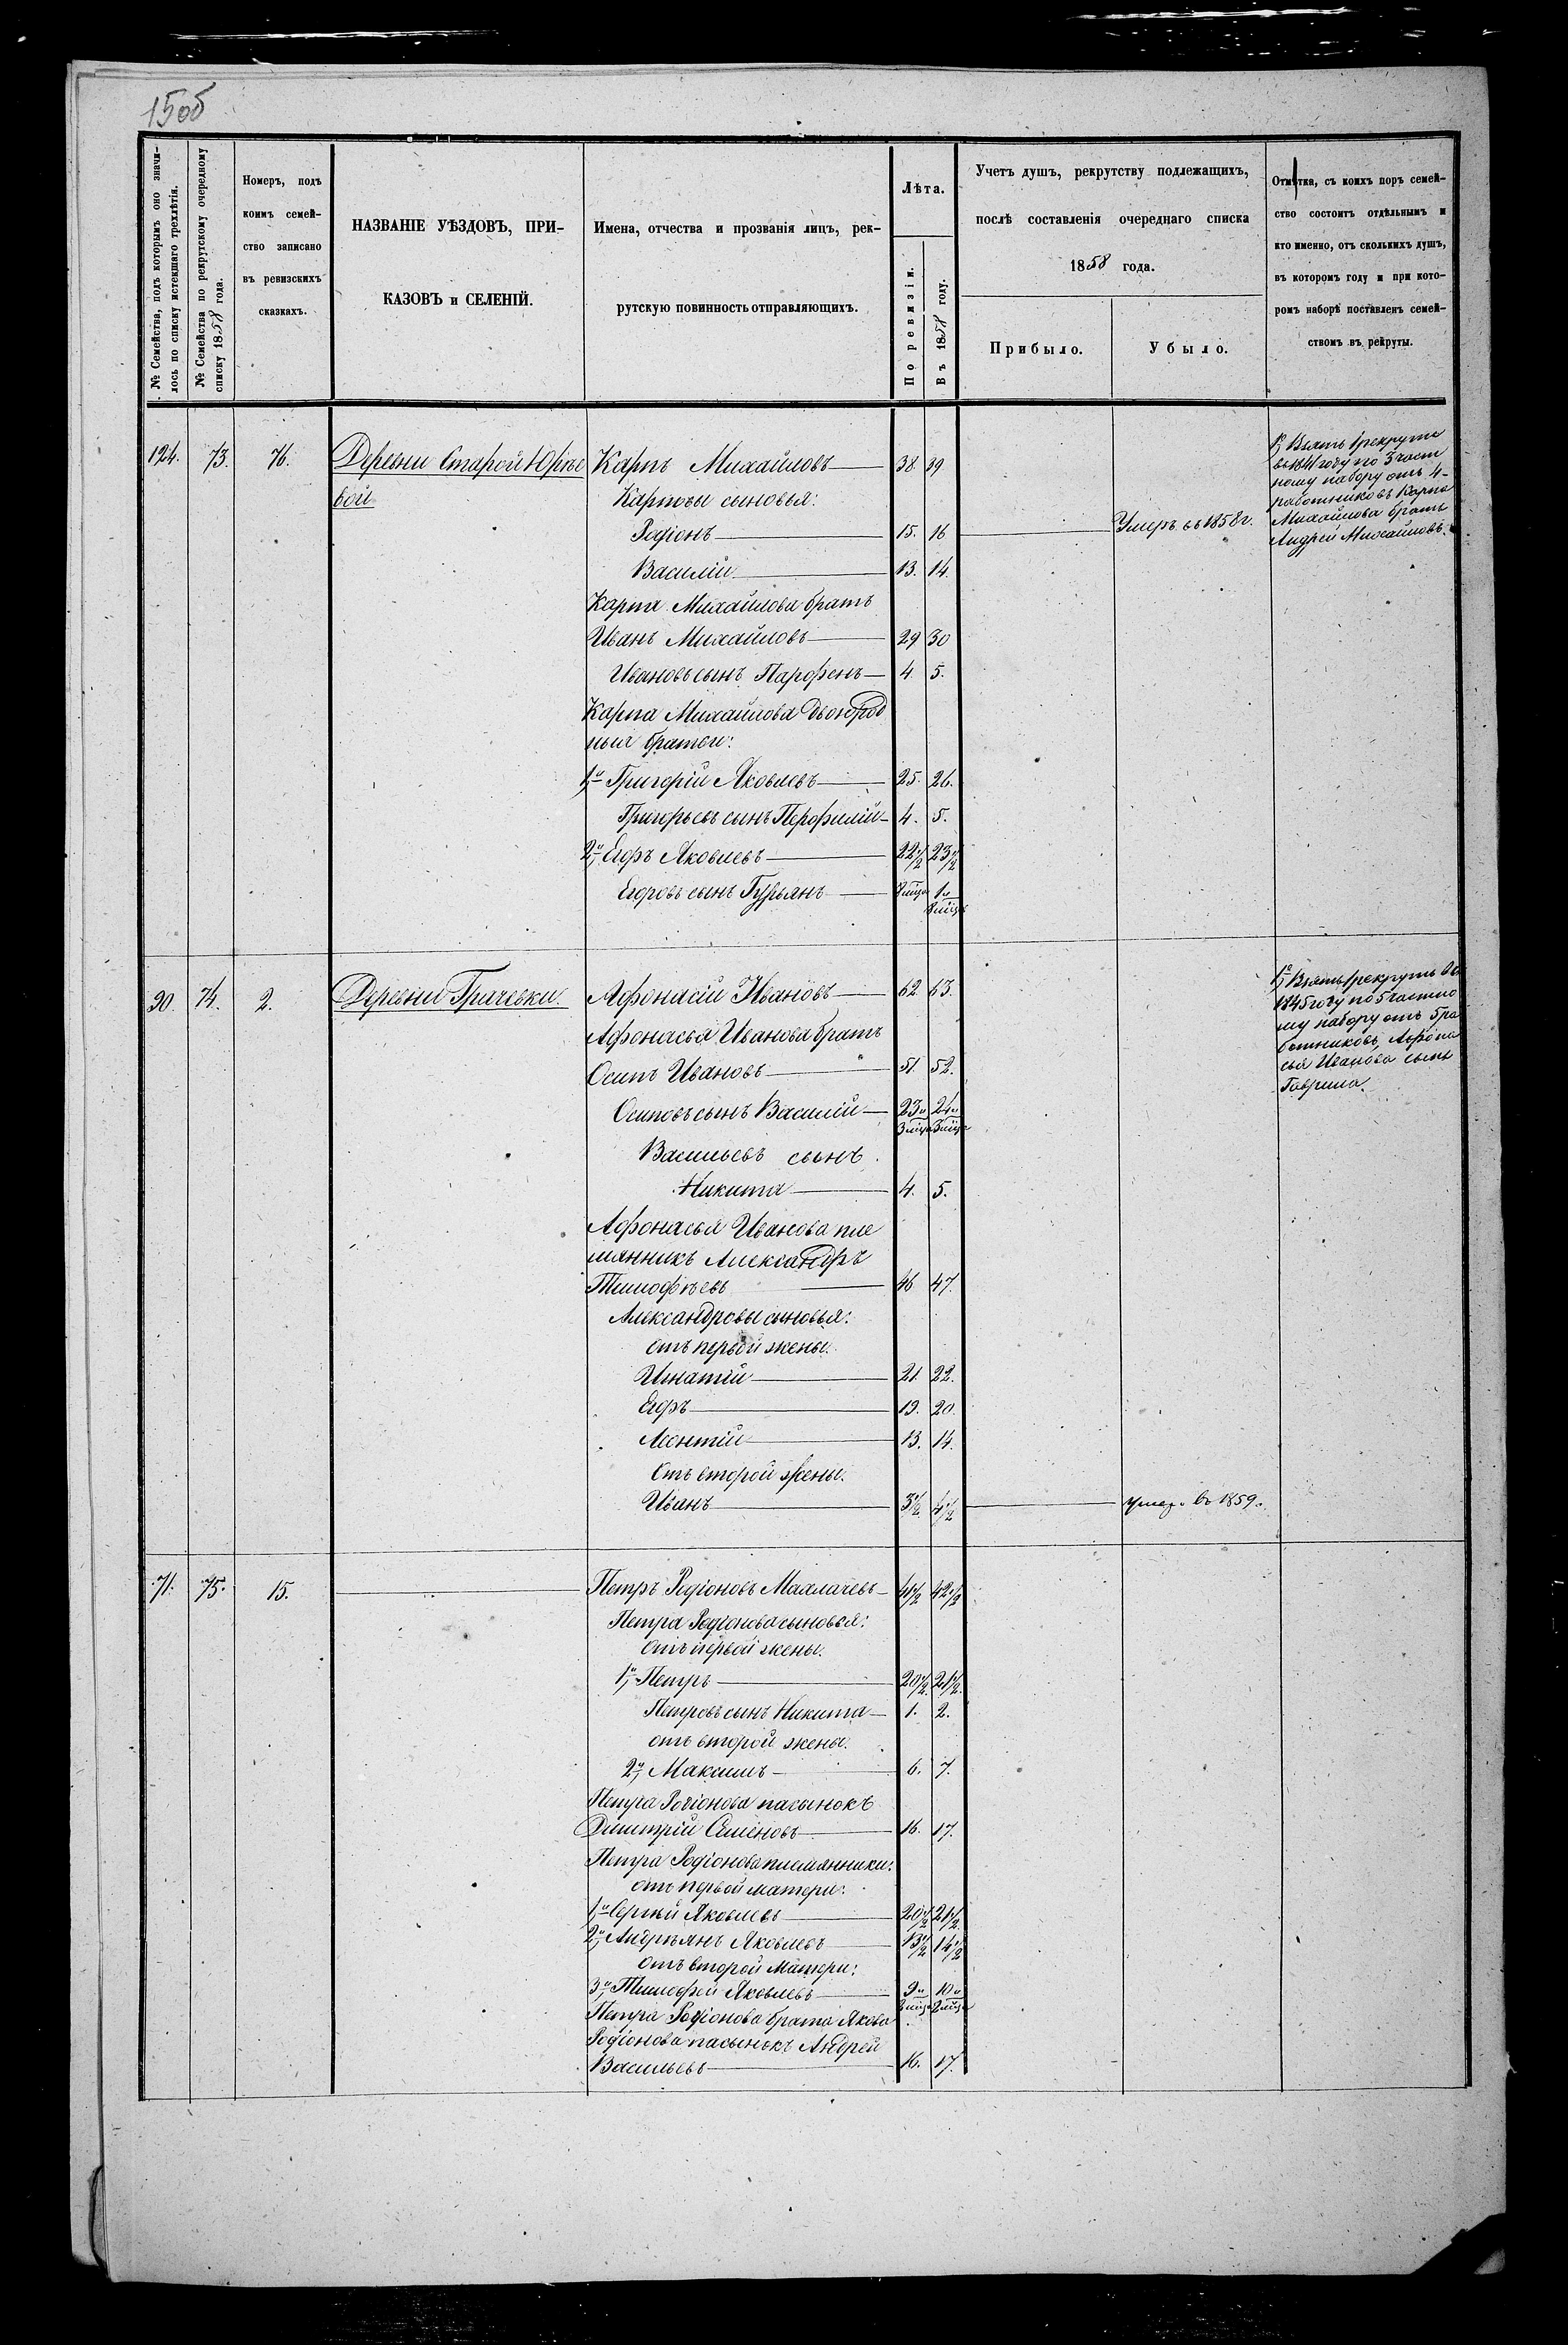 15об
№ Семейства, подъ которымъ оно значи-
лось по списку истекшаго трехлѣтія.
№ Семейства по рекрутскому очередному
списку 1858 года.
Номеръ, подъ
коимъ семей-
ство записано
въ ревизскихъ
сказкахъ.
НАЗВАНІЕ УѢЗДОВЪ, ПРИ-
КАЗОВЪ и СЕЛЕНІЙ.
Имена, отчества и прозванія лицъ, рек-
рутскую повинность отправляющихъ.
Лѣта.
По ревизіи.
Въ 1858 году.
Учетъ душъ, рекрутству подлежащихъ,
послѣ составленія очереднаго списка
1858 года.
Прибыло.
Убыло.
Отмѣтка, съ коихъ поръ семей-
ство состоитъ отдѣльнымъ и
кто именно, отъ сколькихъ душъ,
въ которомъ году и при кото-
ромъ наборѣ поставленъ семей-
ствомъ въ рекруты.
124. 73. 76. Деревни Старой Юрѣе Карпъ Михайловъ 38 39
вой
Карповы сыновья:
Родіонъ 15. 16 Умеръ въ 1858 г.
Василій 13. 14.
1, Взятъ в рекруты
въ 1841 году по 3 част
ному набору отъ 4-
работниковъ Карпа
Михайлова братъ
Андрей Михайловъ.
Карпа Михайлова братъ
Иванъ Михайловъ 29 30
Ивановъ сынъ Парфенъ 4. 5.
Карпа Михайлова двоюрод
ныя братья:
1й Григорій Яковлевъ 25. 26.
Григорьевъ сынъ Перфилій 4. 5.
2й, Егоръ Яковлевъ 22 1/2 23 1/2
Егоровъ сынъ Гурьянъ 8 мѣця 1 и 8 мѣця
90. 74. 2. Деревни Грачевки. Афонасій Ивановъ 62 63.
1, Взятъ в рекруты въ
1845 году по 5 частно
му набору отъ 5 ра
ботниковъ Афона
сья Иванова сынъ
Гаврила.
Афонасья Иванова братъ
Осипъ Ивановъ 51. 52.
Осиповъ сынъ Василій 23 и 3 мѣця 24 и 3 мѣця
Васильевъ сынъ
Никита 4. 5.
Афонасья Иванова пле
мянникъ Александръ
Тимофѣевъ 46 47.
Александровы сыновья:
отъ первой жены.
Игнатій 21 22.
Егоръ 19. 20.
Леонтій 13. 14.
Отъ второй жены.
Иванъ 3 1/2 4 1/2 умеръ въ 1859.
71. 75. 15. Петръ Родіоновъ Махлачевъ 41 1/2 42 1/2
Петра Родіонова сыновья:
отъ первой жены.
1й, Петръ 20 1/2 21 1/2
Петровъ сынъ Никита 1. 2.
отъ второй жены.
2й, Максимъ 6. 7.
Петра Родіонова пасынокъ
Дмитрій Семеновъ 16. 17.
Петра Родіонова племянники:
отъ первой матери:
1й Сергѣй Яковлевъ 20 1/2 21 1/2
2й, Андреянъ Яковлевъ 13 1/2 14 1/2
отъ второй матери:
3й, Тимофей Яковлевъ 9 и 8 мѣця 10 и 8 мѣця
Петра Родіонова брата Якова
Родіонова пасынокъ Андрей
Васильевъ 16. 17.